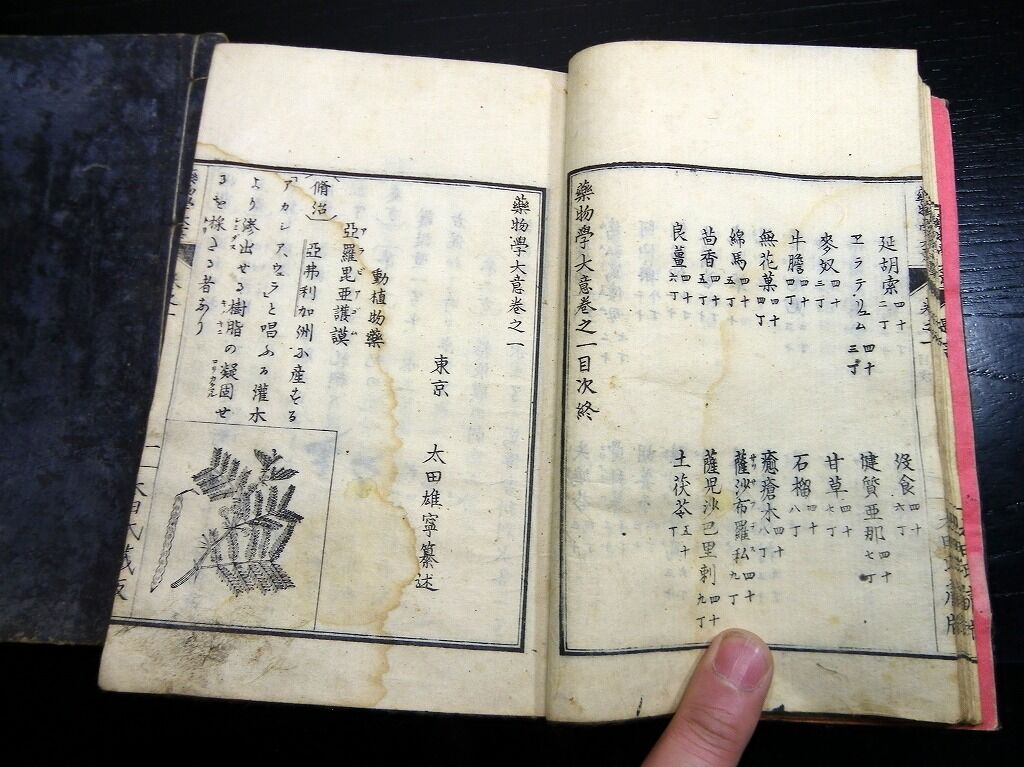 延胡索 四十二丁
ヱラテリュム 四十三丁
麥奴 四十三丁
牛膽 四十四丁
無花菓 四十四丁
綿馬 四十五丁
茴香 四十五丁
良薑 四十六丁
沒食 四十六丁
健質亜那 四十七丁
甘草 四十七丁
石榴 四十八丁
癒瘡木 四十八丁
薩沙布羅私 四十九丁
薩児沙巴里刺 四十九丁
土茯苓 五十丁
藥物學大意卷之一目次終
藥物學大意卷之一
東京 太田雄寧纂述
動植物藥
亞羅毘亜護謨
脩治 亞弗利加洲ニ産する
「アカシア、ウェラ」と唱ふる灌木
より滲出せる樹脂の凝固せ
るを採さる者なり